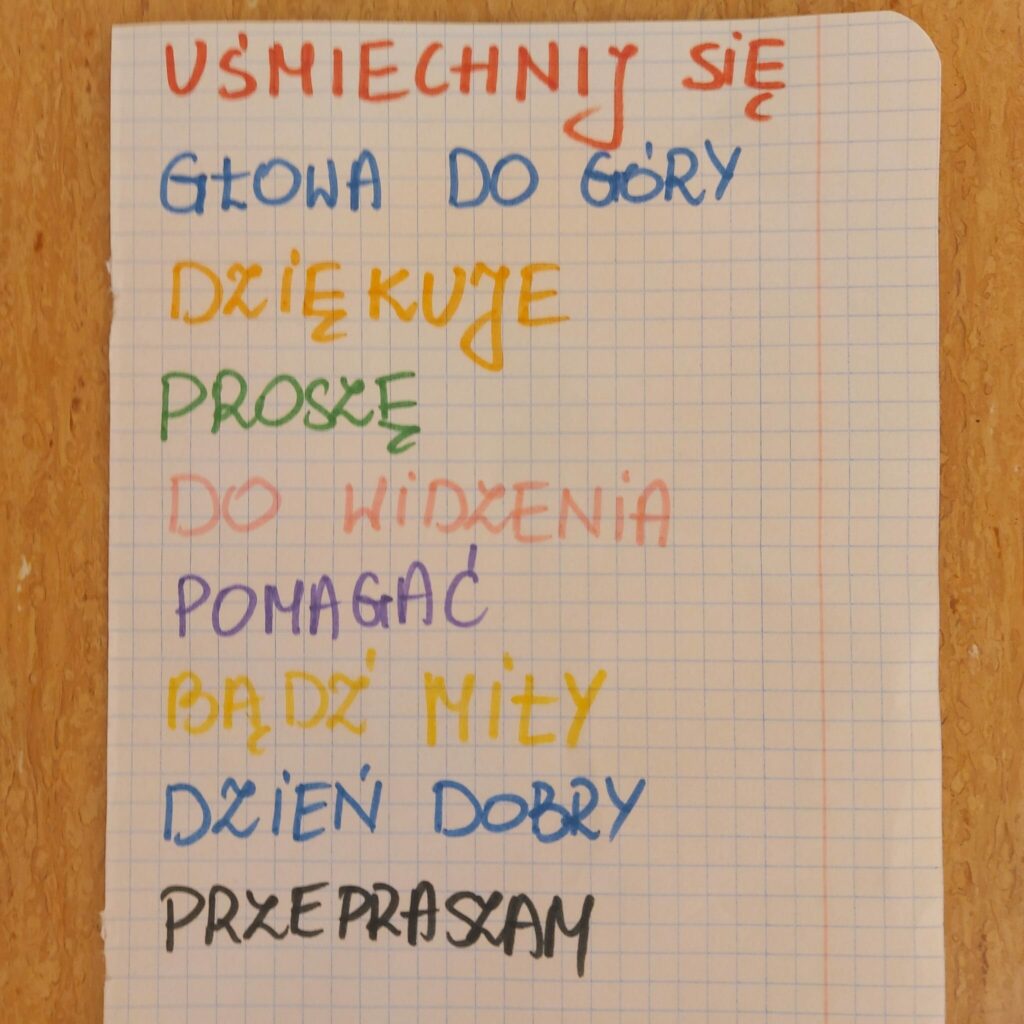 UŚMIECHNIJ SIĘ
GŁOWA DO GÓRY
DZIĘKUJE
PROSZĘ
DO WIDZENIA
POMAGAĆ
BĄDŹ MIŁY
DZIEŃ DOBRY
PRZEPRASZAM